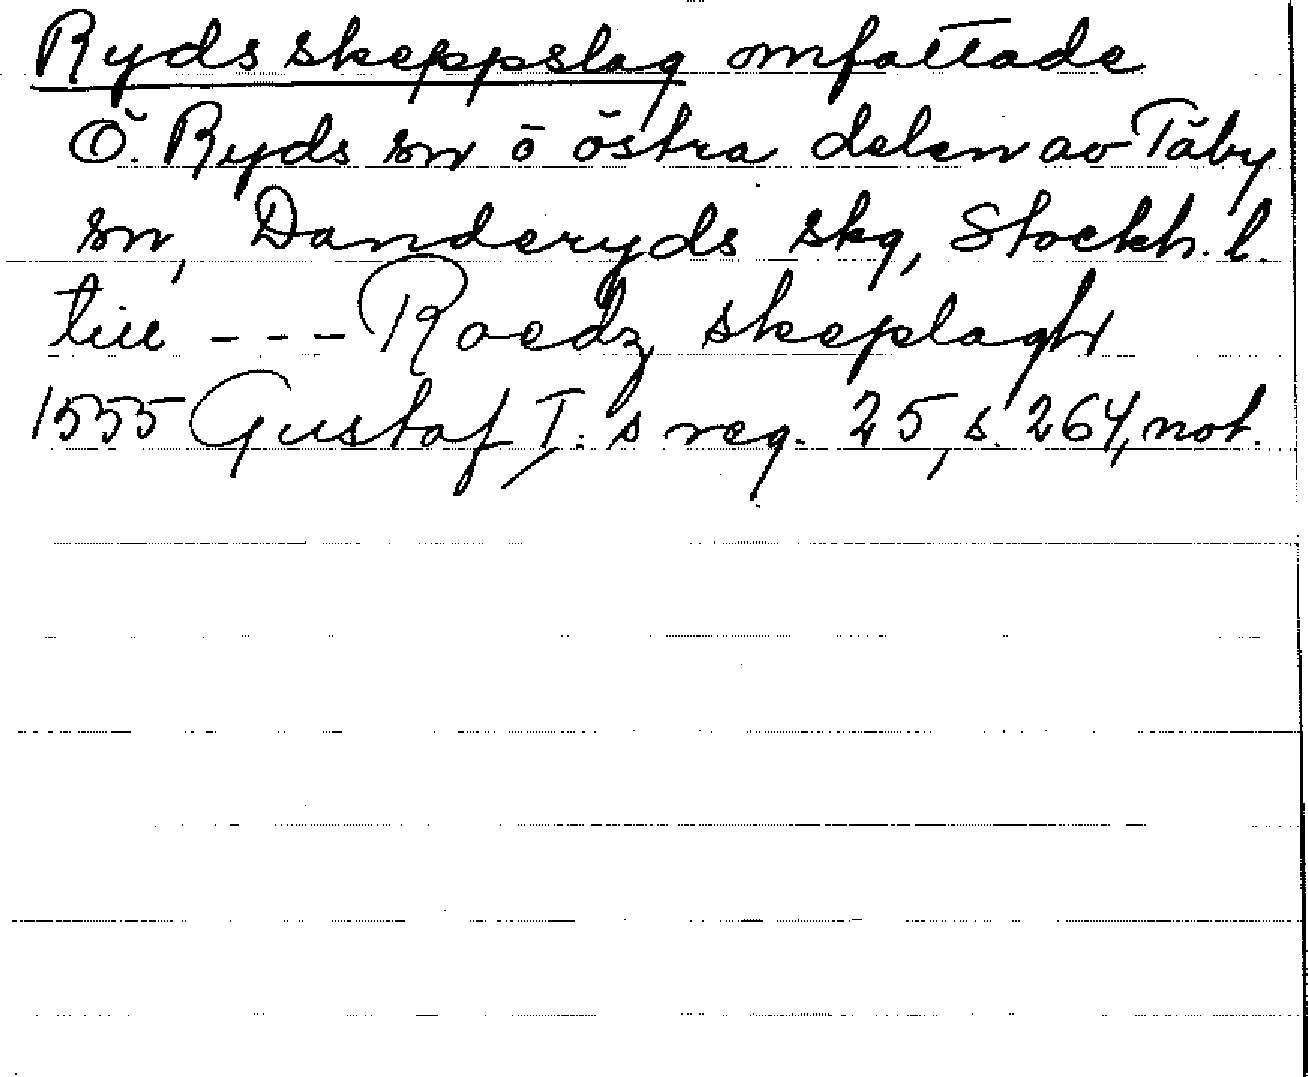 Ryds skeppslag omfattade
Ö. Ryds sn o östra delen av Täby
sn, Danderyds skg, Stockh. l.
till --- Roedz skeplagh
1555 Gustaf I:s reg. 25, s. 264, not.